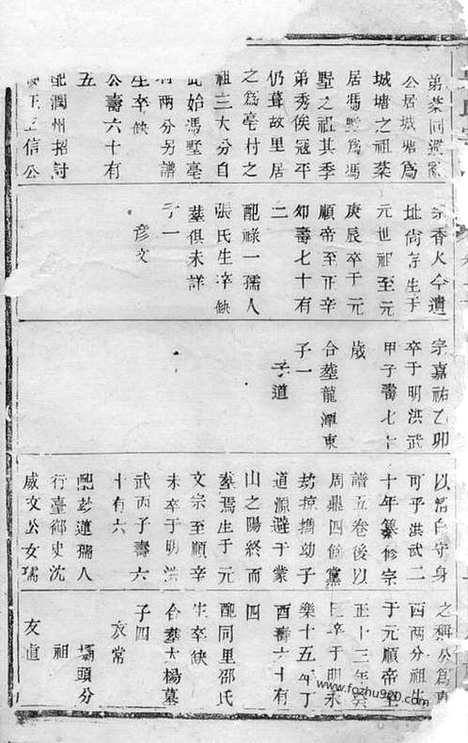 弟葵同遷
公居城塘為
城塘之祖葵
居馮墅為馮
墅之祖其季
弟秀俟冠平
仍葺故里居
之為亳村之
祖三大分自
此始馮墅亳
村兩分另譜
生卒缺
公壽六十有
五
配潤州招討
王信公
宗香火今遺
址尚存生于
元世祖至元
庚辰卒于元
順帝至正辛
卯壽七十有
二
配祿一孺人
張氏生卒缺
葬俱未詳
子一
彥文
宗嘉祐乙卯
卒于明洪武
甲子壽七十
歲
合葬龍潭東
子一
子道
以清白守身
可乎洪武二
十年纂修宗
譜五卷後以
周鼎四餘黨
刦掠攜幼子
道源避于蒙
山之陽終而
葬焉生于元
文宗至順辛
未卒于明洪
武丙子壽六
十有六
配彭蓮孺人
行臺御史沈
威文公女孺
之稱公為東
西兩分祖生
于元順帝至
正十三年癸
巳卒于明永
樂十五年丁
酉壽六十有
四
配同里邵氏
生卒缺
合葬大楊墓
子四
友常
壩頭分
祖
友直
www.fozhu920.com